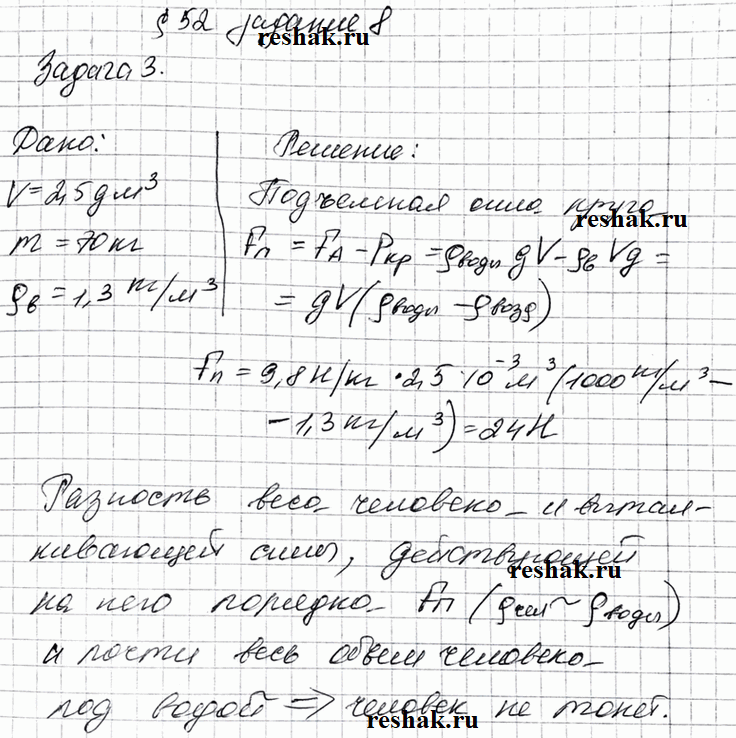 § 52 задание 8
reshak.ru
Задача 3.
Дано:
V = 2,5 дм³
m = 70 кг
ρв = 1,3 кг/м³
Решение:
Подъемная сила круга
reshak.ru
Fп = FА − Pкр = ρводы gV − ρв Vg =
= gV(ρводы − ρвозд)
Fп = 9,8 Н/кг · 2,5 · 10⁻³ м³ (1000 кг/м³ −
− 1,3 кг/м³) = 24 Н
Разность веса человека и вытал-
кивающей силы, действующей
reshak.ru
на него порядка Fп (ρчел ~ ρводы)
и почти весь объем человека
под водой ⇒ человек не тонет.
reshak.ru